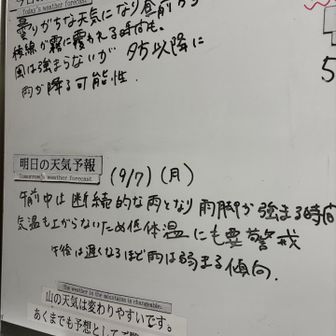 Today's weather forecast
曇りがちな天気になり昼前から
稜線が霧に覆われる時間も。
風は強まらないが 夕方以降に
雨が降る可能性.
明日の天気予報
Tomorrow's weather forecast
(9/7)(月)
午前中は断続的な雨となり 雨脚が強まる時間
気温も上がらないため低体温にも要警戒
午後は遅くなるほど雨は弱まる傾向.
The weather in the mountains is changeable.
山の天気は変わりやすいです。
あくまでも予想として